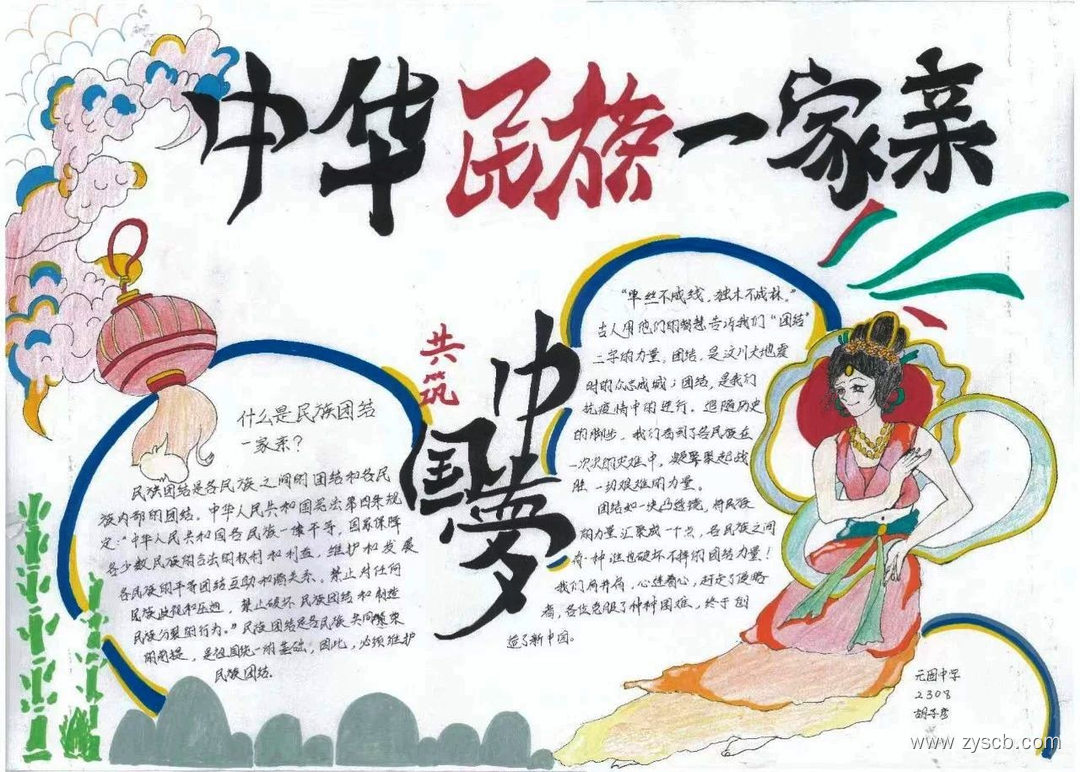 中华民族一家亲
共筑
中国梦
什么是民族团结
一家亲?
民族团结是各民族之间的团结和各民
族内部的团结。中华人民共和国宪法第四条规
定:“中华人民共和国各民族一律平等,国家保障
各少数民族的合法的权利和利益,维护和发展
各民族的平等团结互助和谐关系。禁止对任何
民族歧视和压迫,禁止破坏民族团结和制造
民族分裂的行为。”民族团结是各民族共同繁荣
的前提,是祖国统一的基础,因此,必须维护
民族团结。
“单丝不成线,独木不成林。”
古人用他们的智慧告诉我们“团结”
二字的力量。团结,是汶川大地震
时的众志成城;团结,是我们
抗疫情中的进行。追随历史
的脚步,我们看到了各民族在
一次次的灾难中,凝聚聚起战
胜一切艰难的力量。
团结如一块凸透镜,将民族
的力量汇聚成一个点,各民族之间
有一种谁也破坏不掉的团结力量!
我们肩并肩,心连着心,赶走了侵略
者,各族克服了种种困难,终于创
造了新中国。
元园中学
2308
胡子
www.zyscb.com